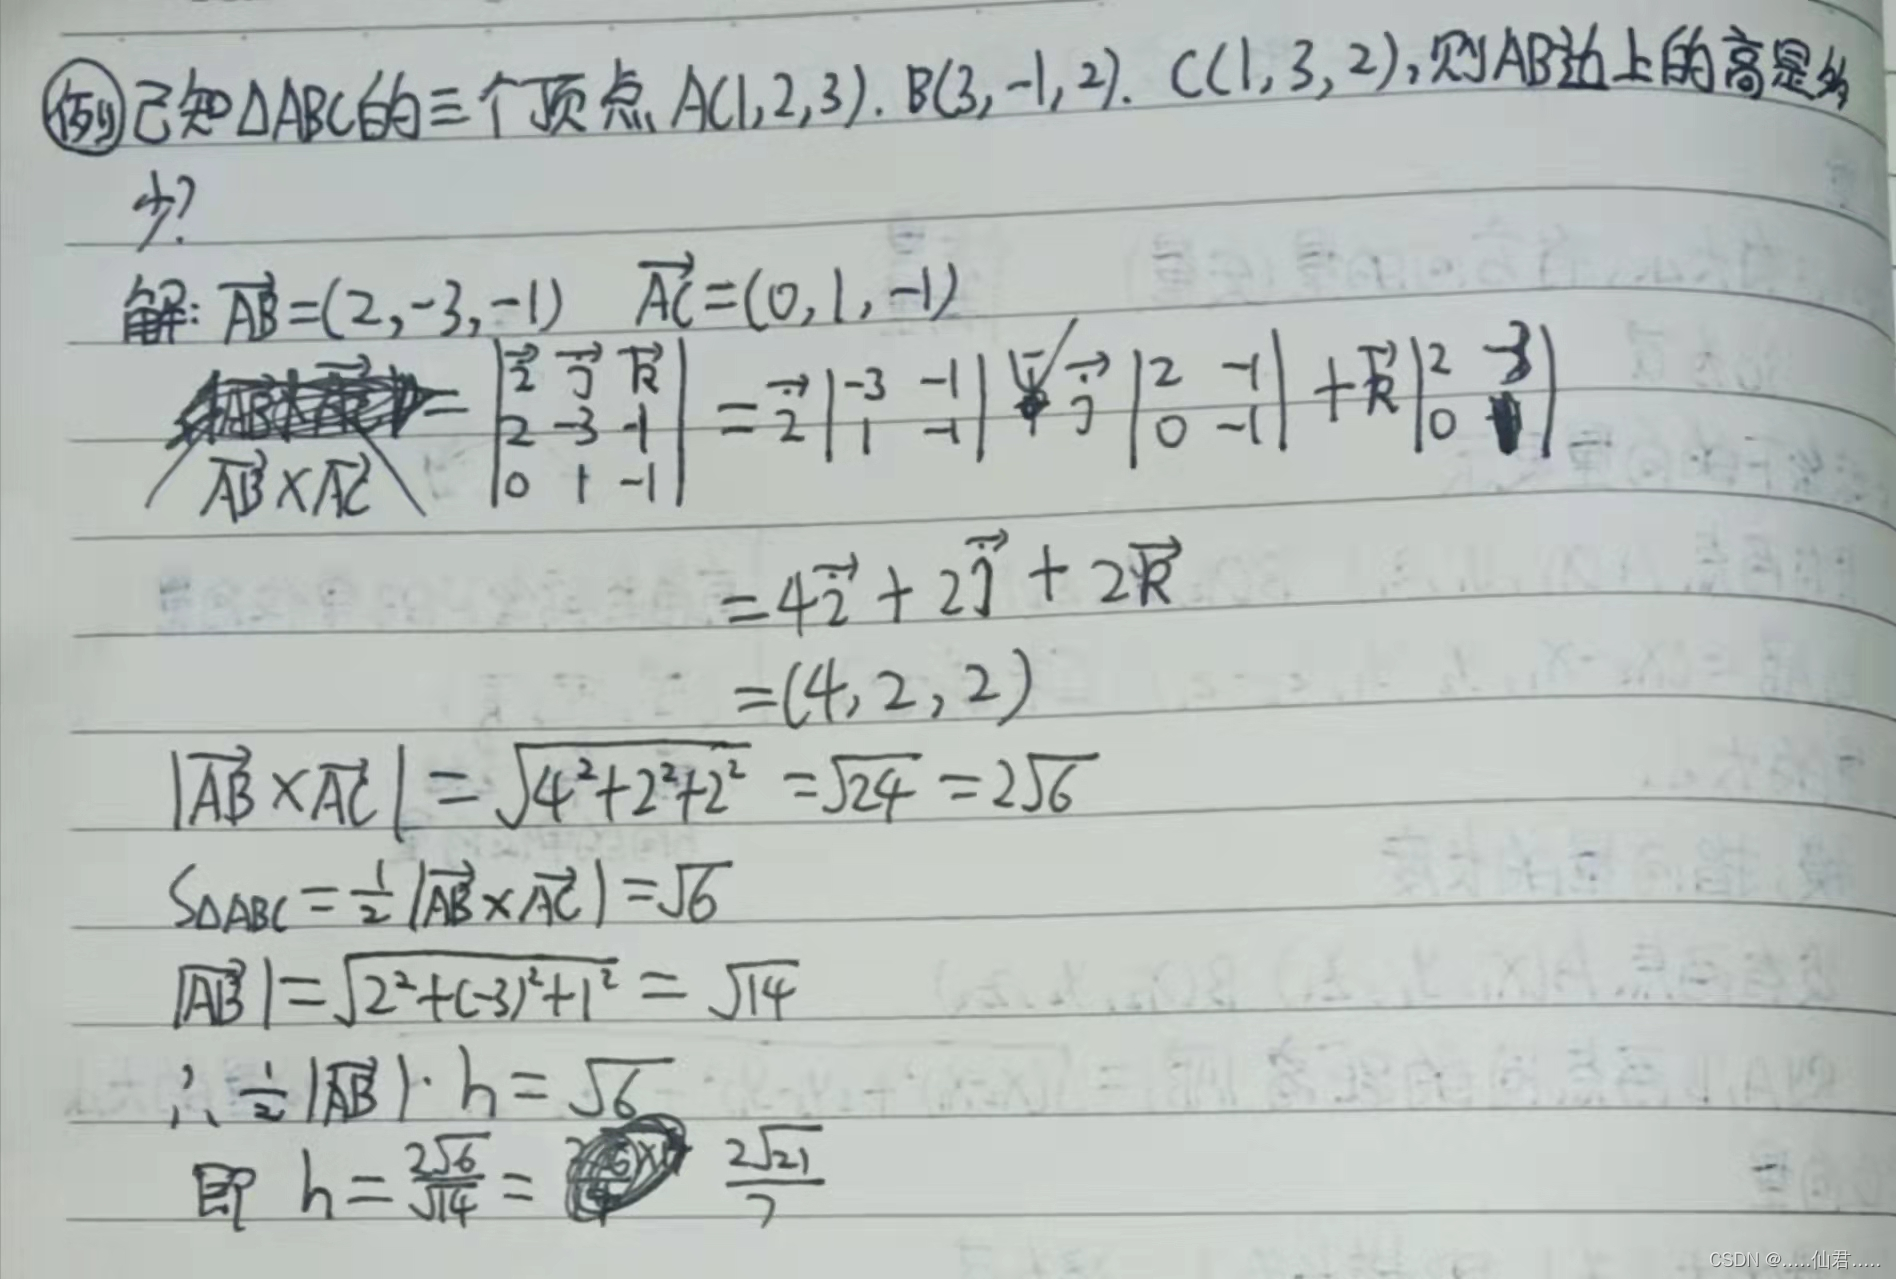 例 已知△ABC的三个顶点 A(1,2,3). B(3,-1,2). C(1,3,2),则AB边上的高是多
少?
解: AB→=(2,-3,-1) AC→=(0,1,-1)
AB→×AC→ = |i→ j→ k→; 2 -3 -1; 0 1 -1| = i→|-3 -1; 1 -1| - j→|2 -1; 0 -1| + k→|2 -3; 0 1|
=4i→+2j→+2k→
=(4,2,2)
|AB→×AC→|=√(4²+2²+2²)=√24=2√6
S△ABC=½|AB→×AC→|=√6
|AB→|=√(2²+(-3)²+1²)=√14
∴ ½|AB→|·h=√6
即 h=2√6/√14= 2√21/7
CSDN @.....仙君.....